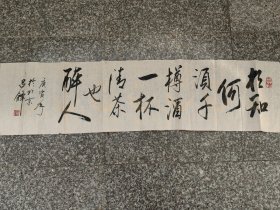 相知
何
须千
樽酒
一杯
清茶
也
醉人
庚寅年
於北京